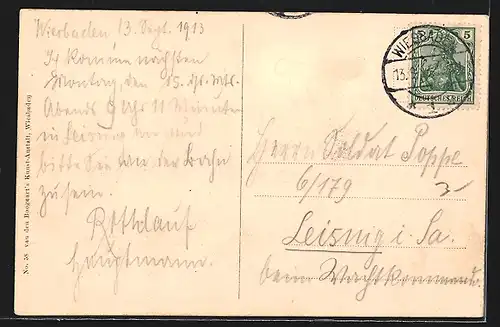 Wiesbaden 13. Sept. 1913
Ich komme nächsten
Montag, den 15. ds. Mts.
Abends 9 Uhr 11 Minuten
in Leisnig an und
bitte Sie an der Bahn
zu sein.
Rothlauf
Hauptmann.
No. 38 van den Boogaart's Kunst-Anstalt, Wiesbaden
WIESBAD
13.
5
DEUTSCHES REICH
Herrn Soldat Poppe
6/179
Leisnig i. Sa.
beim